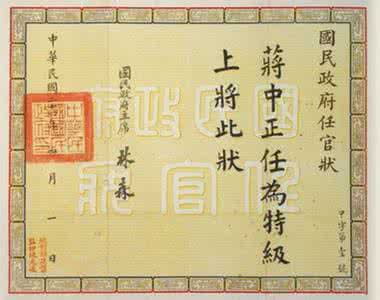 國民政府任官狀
甲字第壹號
蔣中正任為特級
上將此狀
國民政府主席 林森
中華民國 年 月一日
國民政府
任官狀